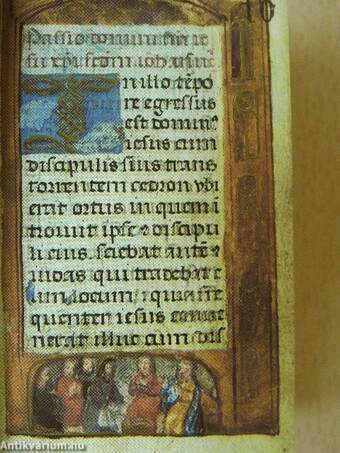 Passio domini nri ie
su xpi scdm iohanne
In illo tēpo
re egressus
est domin⁹
iesus cum
discipulis suis trans
torrentem cedron vbi
erat ortus in quem i
troiuit ipse & discipu
li eius. sciebat autē &
iudas qui tradebat e
um locum: quia fre
quenter iesus conue
nerat illuc cum dis
Antikvarium.hu